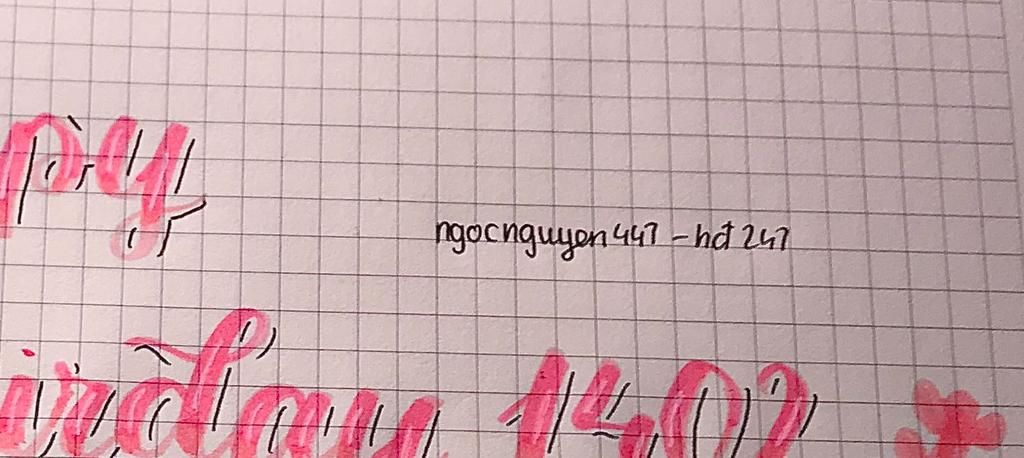 ppy
ngocnguyen447 - hđ247
irthday 1407